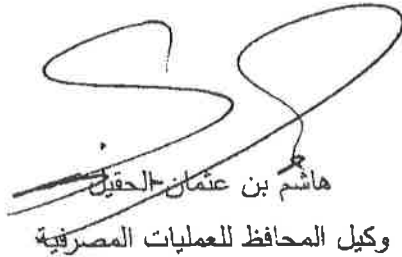 هاشم بن عثمان الحقيل
وكيل المحافظ للعمليات المصرفية